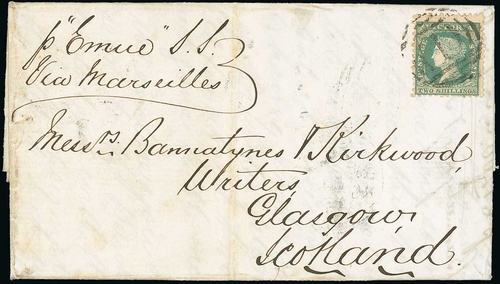 p "Emeu" S.S.
Via Marseilles
VICTORIA
TWO SHILLINGS
Messrs. Bannatynes & Kirkwood
Writers
Glasgow
Scotland.